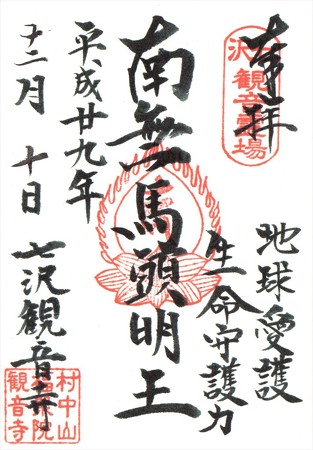 奉拝
七沢観音霊場
地球愛護
生命守護力
南無馬頭明王
平成廿九年
十二月 十日
七沢観音寺
村中山
観音寺